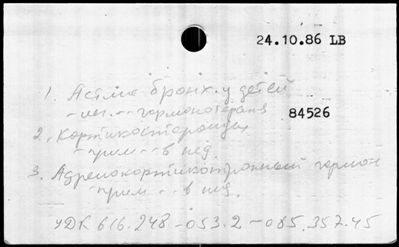 24.10.86 LB
1. Астма бронх. у детей
- леч. - - гормонотерапия
84526
2. Кортикостероиды
- прим. - - в пед.
3. Адренокортикотропный гормон
- прим. - - в пед.
УДК 616.248-053.2-085.357.45